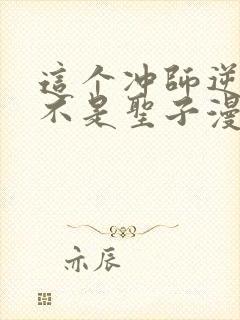 這个冲師逆
不是聖子漫
亦辰